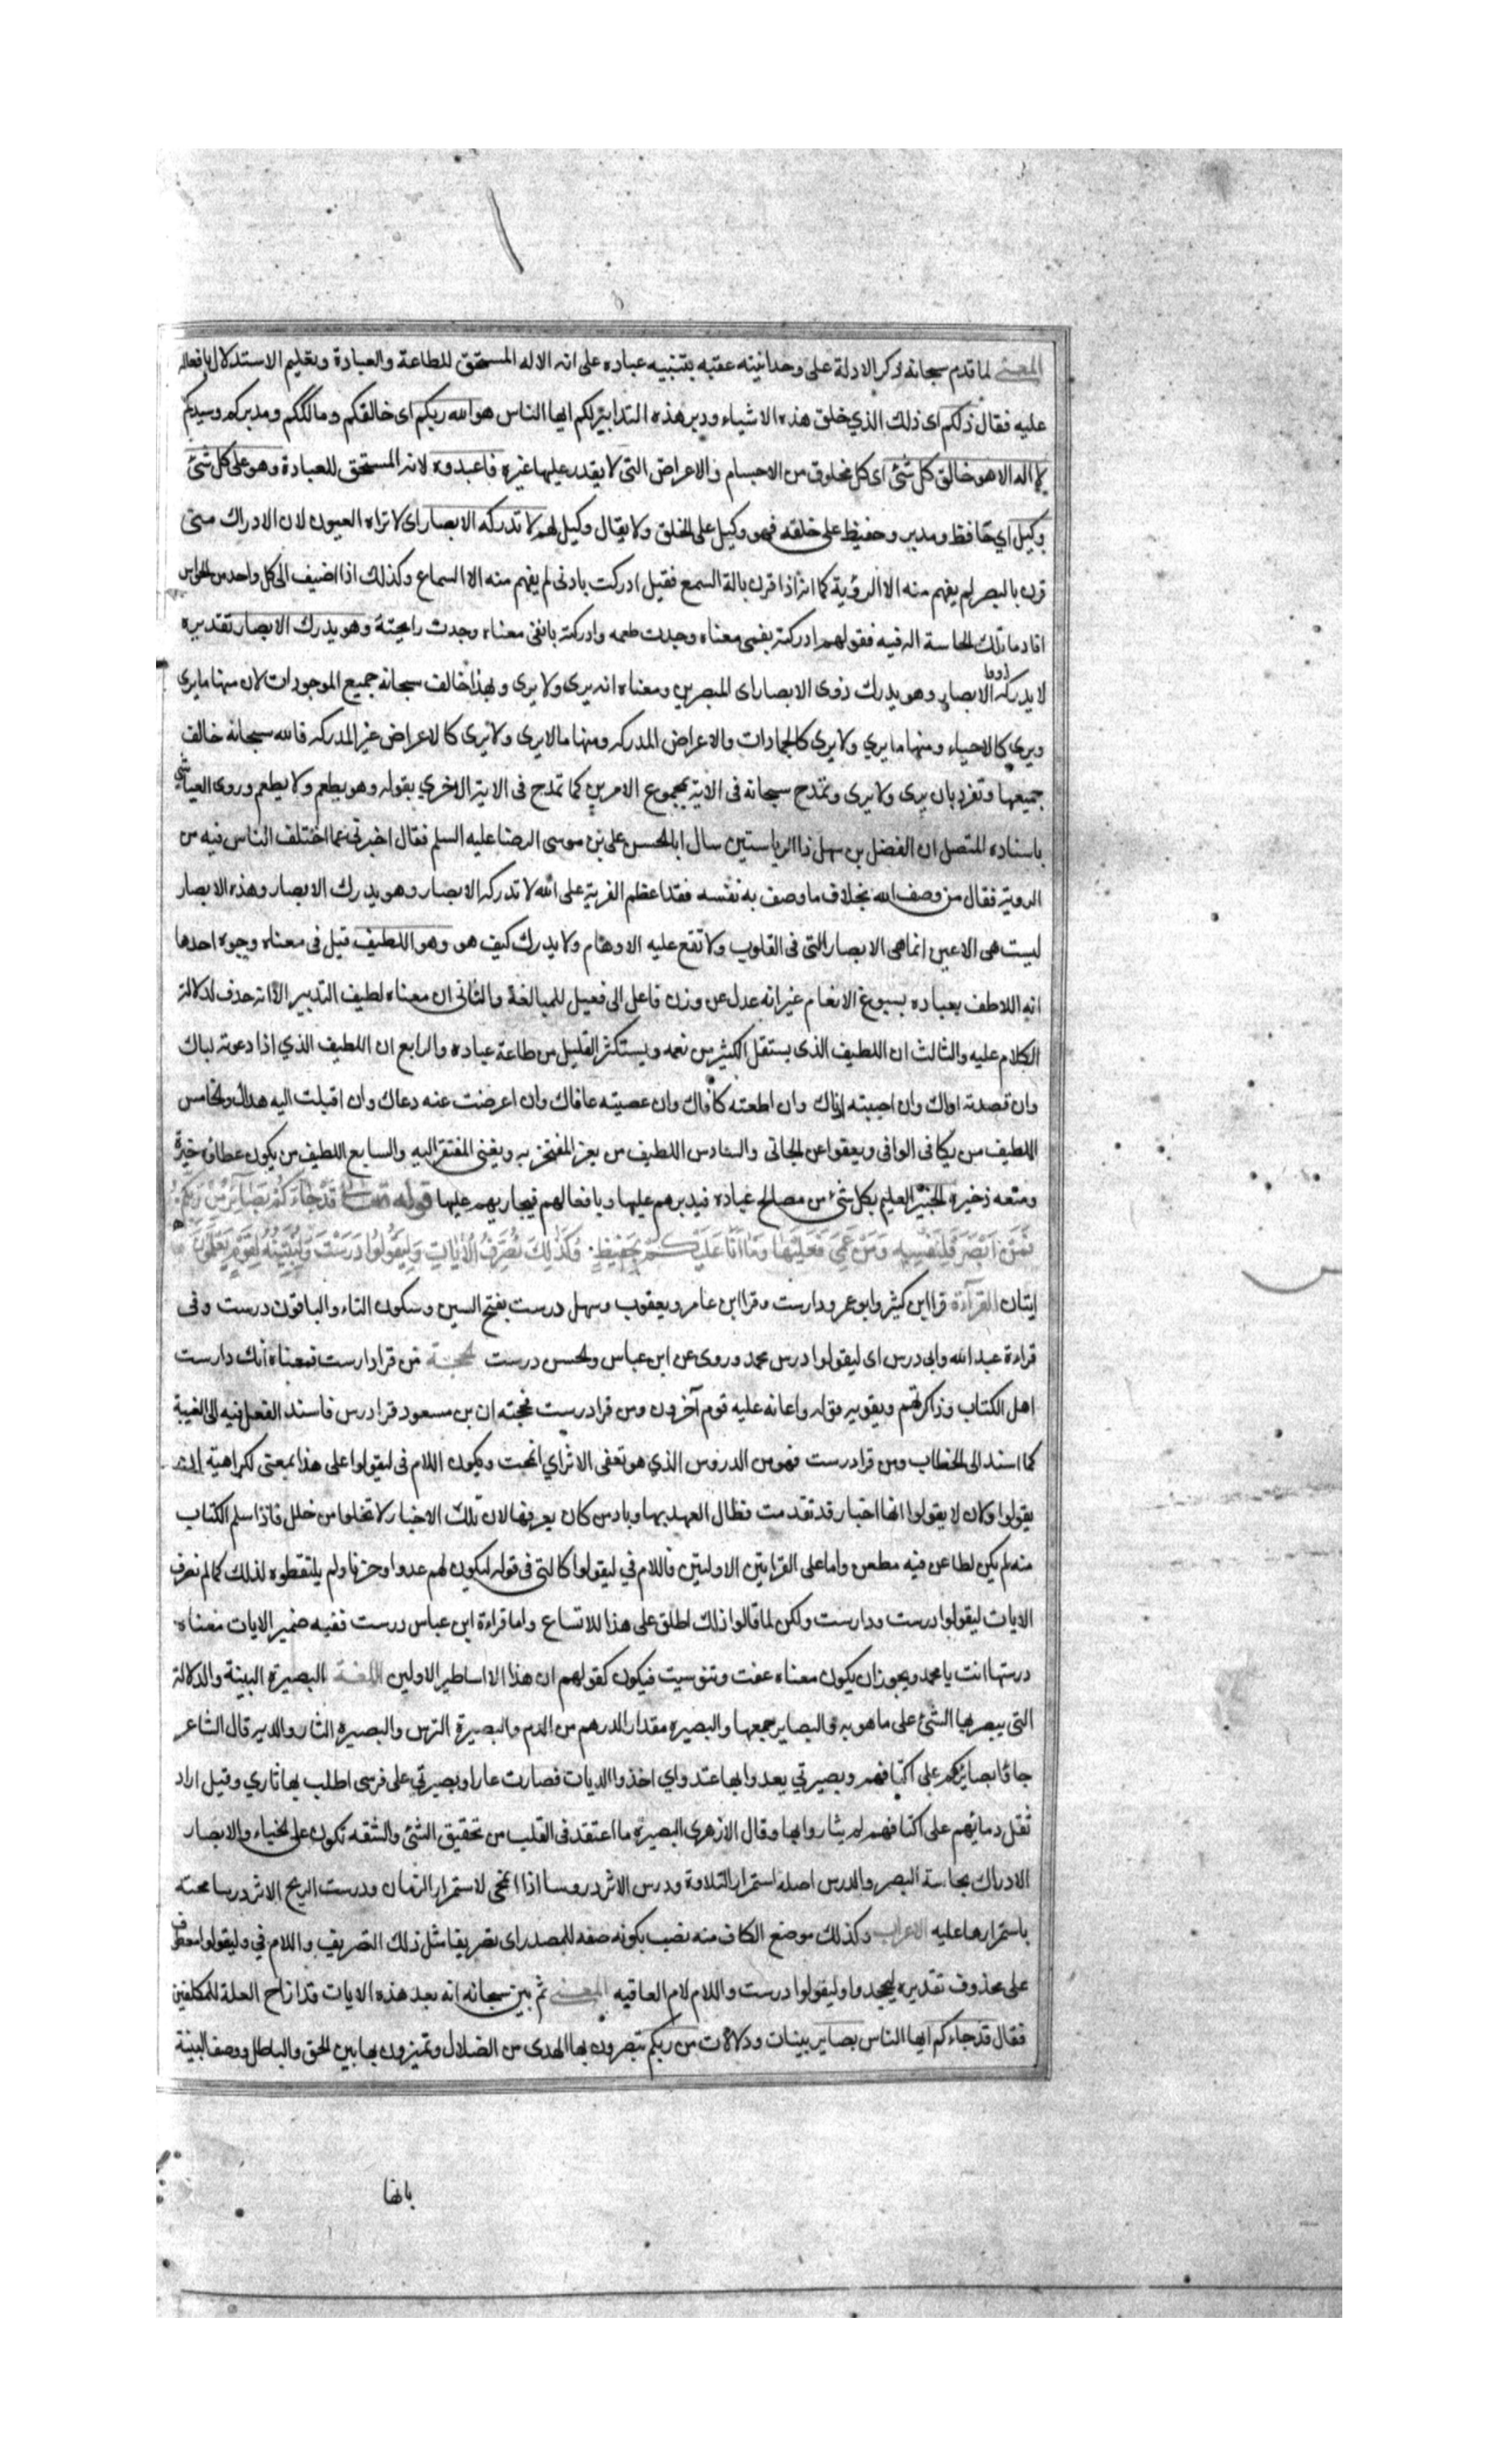 المعنى لما قدم سبحانه ذكر الادلة على وحدانيته عقبه بتنبيه عباده على انه الاله المستحق للطاعة والعبادة وتعليم الاستدلال بافعاله
عليه فقال ذلكم اى ذلك الذي خلق هذه الاشياء ودبر هذه التدابير لكم ايها الناس هو الله ربكم اى خالقكم ومالككم ومدبركم وسيدكم
لا اله الا هو خالق كل شئ اى كل مخلوق من الاجسام والاعراض التى لا يقدر عليها غيره فاعبدوه لانه المستحق للعبادة وهو على كل شئ
وكيل اي حافظ ومدبر وحفيظ على خلقه فهو وكيل على الخلق ولا يقال وكيل لهم لا تدركه الابصار اى لا تراه العيون لان الادراك متى
قرن بالبصر لم يفهم منه الا الرؤية كما انه اذا قرن بالة السمع فقيل ادركت باذنى لم يفهم منه الا السماع وكذلك اذا اضيف الى كل واحد من الحواس
افاد ما تلك الحاسة اله فيه فقولهم ادركته بفمى معناه وجدت طعمه وادركته بانفى معناه وجدت رايحته وهو يدرك الابصار تقديره
لا يدركه ذووا الابصار وهو يدرك ذوى الابصار اى المبصرين ومعناه انه يرى ولا يرى وبهذا خالف سبحانه جميع الموجودات لان منها ما يرى
ويرى كالاحياء ومنها ما يري ولا يرى كالجمادات والاعراض المدركه ومنها ما لا يرى ولا يرى كالاعراض غير المدركه فالله سبحانه خالف
جميعها وتفرد بان يرى ولا يرى وتمدح سبحانه فى الاية بمجموع الامرين كما تمدح فى الاية الاخري بقوله وهو يطعم ولا يطعم وروى العياشي
باسناده المتصل ان الفضل بن سهل ذا الرياستين سال ابا الحسن على بن موسى الرضا عليه السلم فقال اخبرنى عما اختلف الناس فيه من
الروية فقال من وصف الله بخلاف ما وصف به نفسه فقد اعظم الفرية على الله لا تدركه الابصار وهو يدرك الابصار وهذه الابصار
ليست هى الاعين انما هى الابصار التى فى القلوب ولا تقع عليه الاوهام ولا يدرك كيف هو وهو اللطيف قيل فى معناه وجوه احدها
انه اللاطف بعباده بسبوغ الانعام غير انه عدل عن وزن فاعل الى فعيل للمبالغة والثانى ان معناه لطيف التدبير الا انه حذف لدلالة
الكلام عليه والثالث ان اللطيف الذى يستقل الكثير من نعمه ويستكثر القليل من طاعة عباده والرابع ان اللطيف الذي اذا دعوته لباك
وان قصدته اواك وان احببته ادناك وان اطعته كافاك وان عصيته عافاك وان اعرضت عنه دعاك وان اقبلت اليه هداك والخامس
اللطيف من يكافى الوافى ويعفوا عن الجانى والسادس اللطيف من يعز المفتخر به ويغنى المفتقر اليه والسابع اللطيف من يكون عطاؤه خيرة
ومنعه ذخيره الخبير العليم بكل شئ من مصالح عباده فيدبرهم عليها وبافعالهم فيجازيهم عليها قوله تعالى قَدْ جَاءَكُمْ بَصَائِرُ مِنْ رَبِّكُمْ
فَمَنْ اَبْصَرَ فَلِنَفْسِهِ وَمَنْ عَمِيَ فَعَلَيْهَا وَمَا اَنَا عَلَيْكُمْ بِحَفِيظٍ وَكَذَلِكَ نُصَرِّفُ الْاٰيَاتِ وَلِيَقُولُوا دَرَسْتَ وَلِنُبَيِّنَهُ لِقَوْمٍ يَعْلَمُونَ
ايتان القرآءة قرا ابن كثير وابو عمرو دارست وقرا ابن عامر ويعقوب وسهل درست بفتح السين وسكون التاء والباقون درست وفى
قراءة عبد الله وابى درس اى ليقولوا درس محمد وروى عن ابن عباس والحسن درست الحجة من قرا دارست فمعناه انك دارست
اهل الكتاب وذاكرتهم ويقويه قوله واعانه عليه قوم آخرون ومن قرا درست فحجته ان بن مسعود قرا درس فاسند الفعل فيه الى الغيبة
كما اسند الى الخطاب ومن قرا درست فهو من الدروس الذي هو تعفى الاثر اي انمحت ويكون اللام فى ليقولوا على هذا بمعنى لكراهية ان
يقولوا ولان لا يقولوا انها اخبار قد تقدمت فطال العهد بها وباد من كان يعرفها لان تلك الاخبار لا تخلوا من خلل فاذا سلم الكتاب
منه لم يكن لطاعن فيه مطعن واما على القرايتين الاوليين فاللام في ليقولوا كالتى فى قوله ليكون لهم عدوا وحزنا ولم يلتقطوه لذلك كما لم نصرف
الايات ليقولوا درست ودارست ولكن لما قالوا ذلك اطلق على هذا للاتساع واما قراءة ابن عباس درست ففيه ضمير الايات معناه
درستها انت يا محمد ويجوز ان يكون معناه عفت وتنوسيت فيكون كقولهم ان هذا الا اساطير الاولين اللغة البصيرة البينة والدلالة
التى يبصر بها الشئ على ما هو به والبصاير جمعها والبصيره مقدار الدرهم من الدم والبصيرة الترس والبصيره الثار والديه قال الشاعر
جاؤا بصايرهم على اكتافهم وبصيرتي يعدوا بها عتد واي اخذوا الديات فصارت عارا وبصيرتي على فرسى اطلب بها ثاري وقيل اراد
ثقل دمائهم على اكتافهم لم يثاروا بها وقال الازهرى البصيرة ما اعتقد فى القلب من تحقيق الشئ والشقه تكون على الخباء والابصار
الادراك بحاسة البصر والدرس اصله استمرار التلاوة ودرس الاثر دروسا اذا انمحى لاستمرار الزمان ودرست الريح الاثر درسا محته
باستمرارها عليه الاعراب وكذلك موضع الكاف منه نصب بكونه صفه للمصدر اى تصريفا مثل ذلك التصريف واللام في وليقولوا معطوف
على محذوف تقديره ليجحدوا وليقولوا درست واللام لام العاقبه المعنى ثم بين سبحانه انه بعد هذه الايات قد ازاح العلة للمكلفين
فقال قد جاءكم ايها الناس بصاير بينات ودلالات من ربكم تبصرون بها الهدى من الضلال وتميزون بها بين الحق والباطل ووصف البينة
بانها